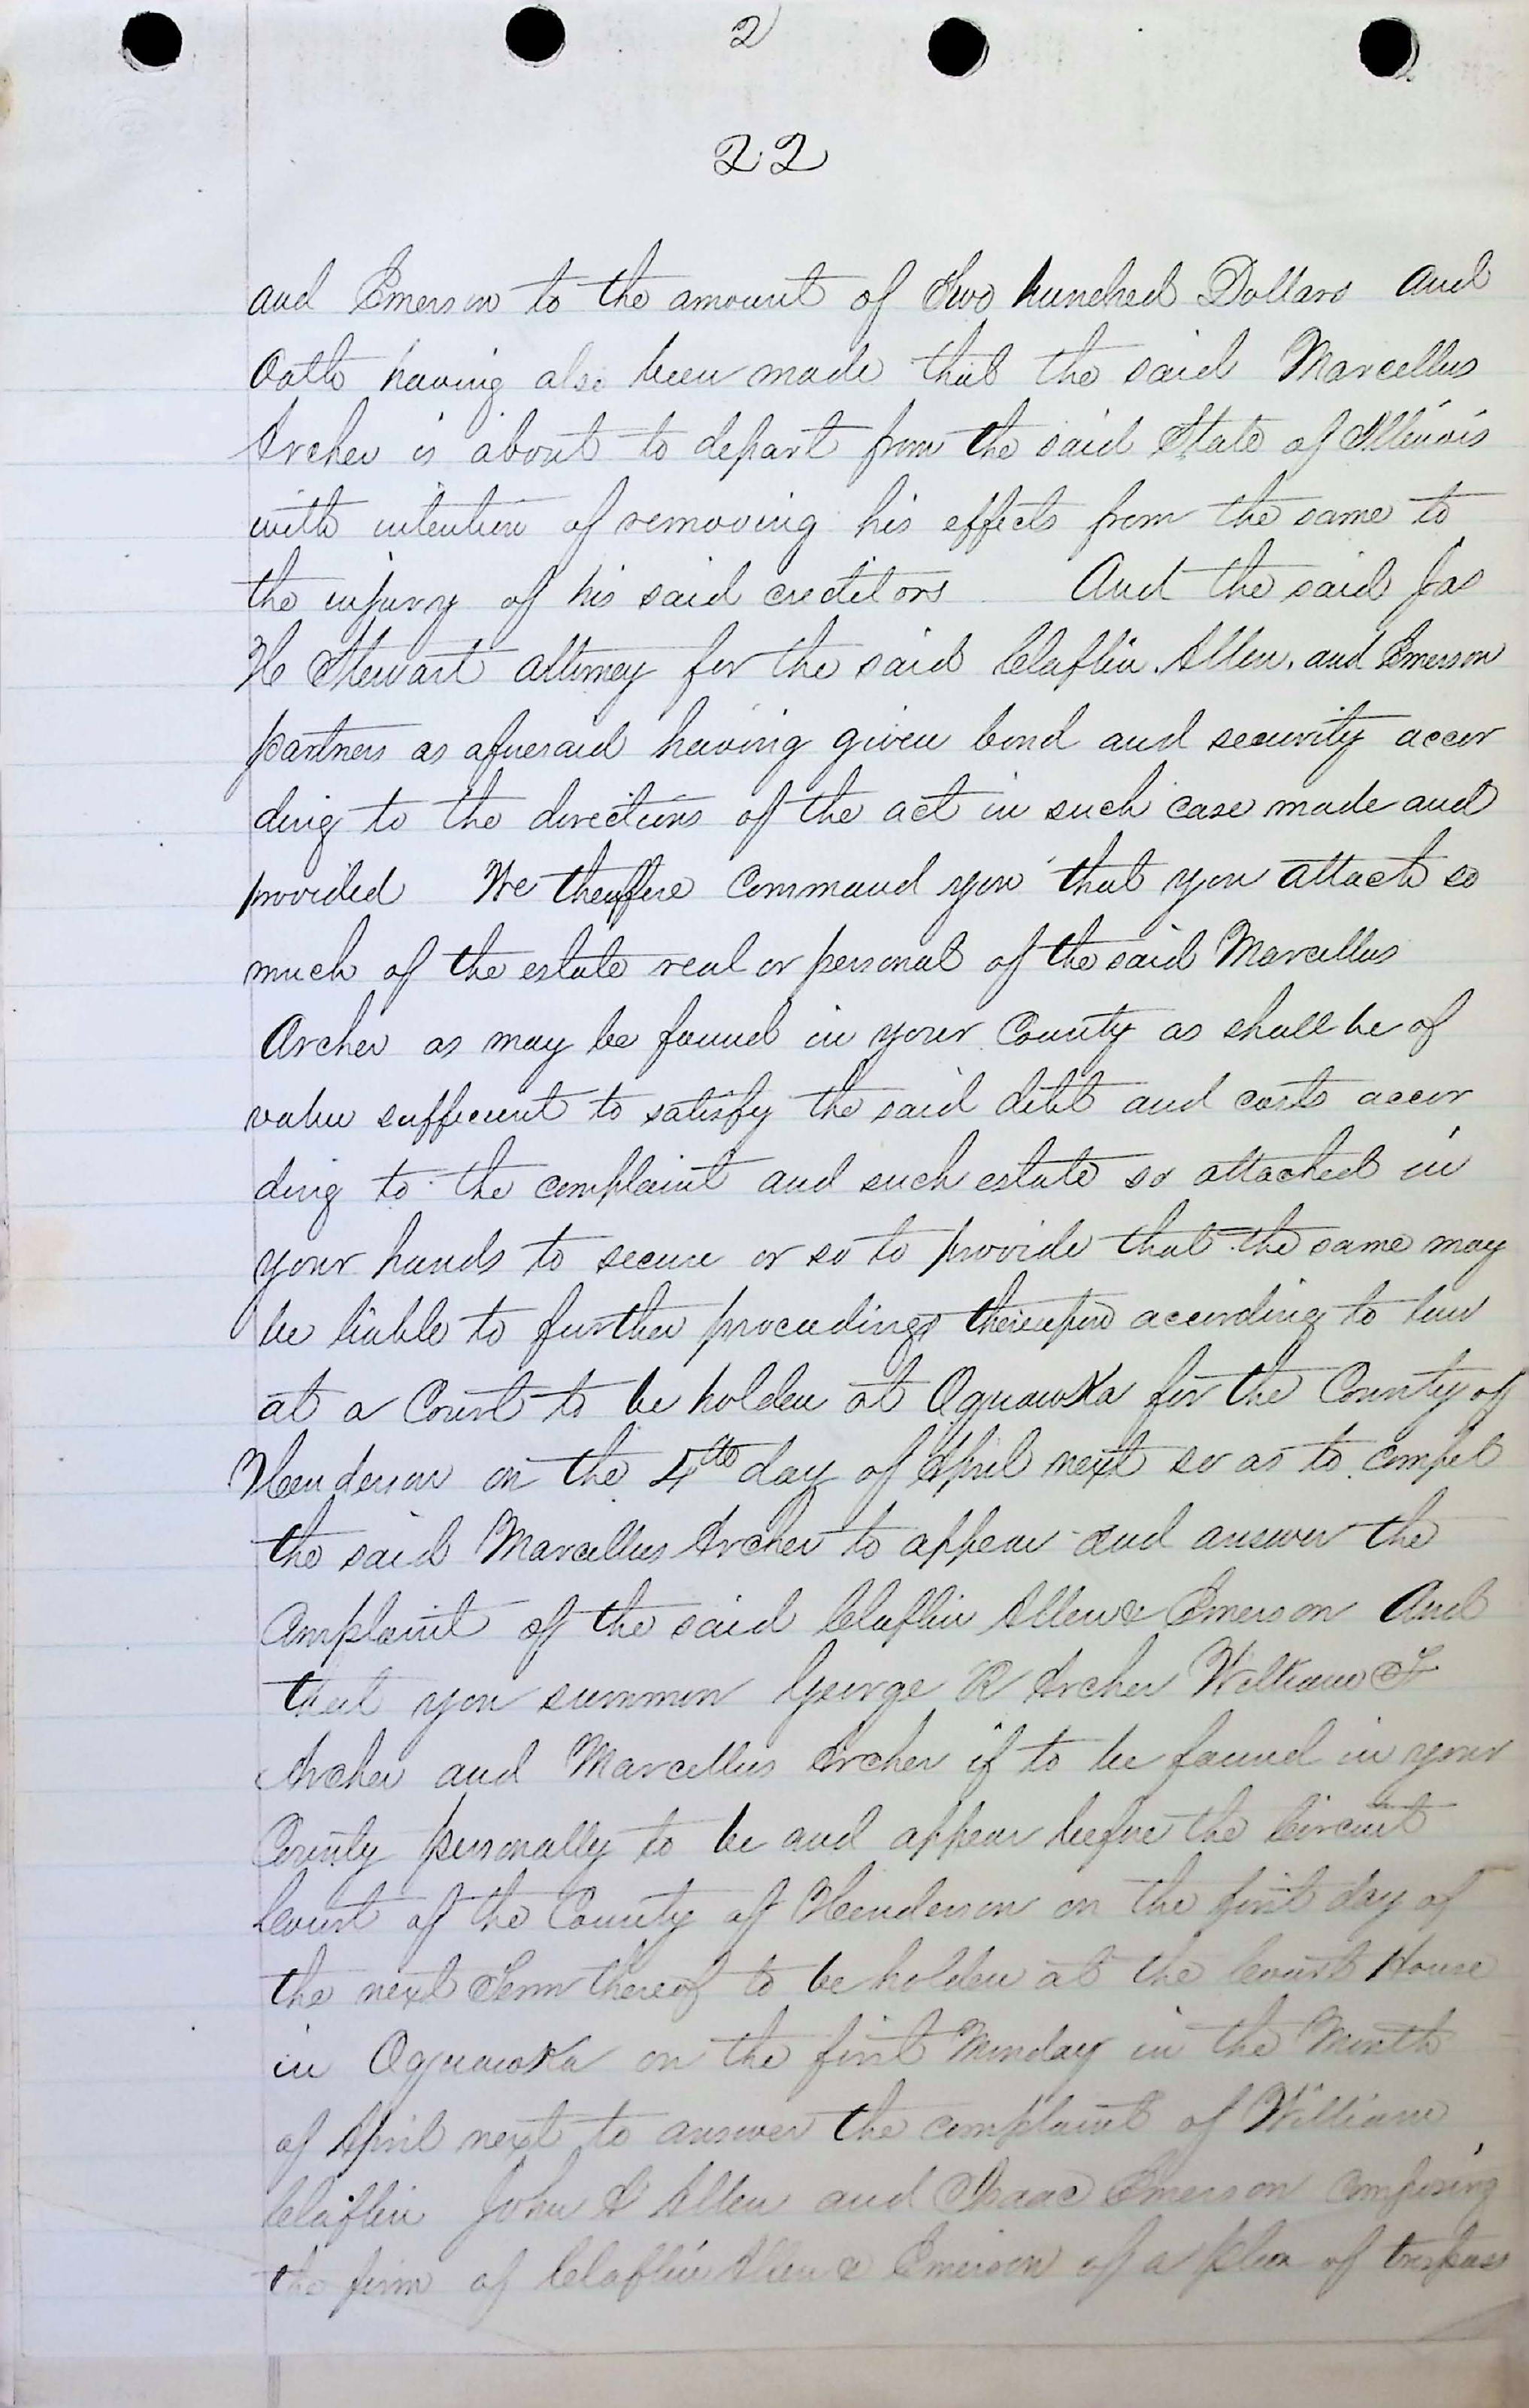 2
22
and Emerson to the amount of Two hundred Dollars And
Oath having also been made that the said Marcellus
Archer is about to depart from the said State of Illinois
with intention of removing his effects from the same to
the injury of his said creditors And the said Jas
H Stewart attorney for the said Claflin, Allen, and Emerson
partners as aforesaid having given bond and security accor
ding to the directions of the act in such case made and
provided We therefore Command you that you attach so
much of the estate real or personal of the said Marcellus
Archer as may be found in your County as shall be of
value sufficient to satisfy the said debt and costs accor
ding to the complaint and such estate so attached in
your hands to secure or so to provide that the same may
be liable to further proceedings thereupon according to law
at a Court to be holden at Oquawka for the County of
Henderson on the 4th day of April next so as to compel
the said Marcellus Archer to appear and answer the
Complaint of the said Claflin Allen & Emerson And
that you summon George R Archer William F
Archer and Marcellus Archer if to be found in your
County personally to be and appear before the Circuit
Court of the County of Henderson on the first day of
the next Term thereof to be holden at the Court House
in Oquawka on the first Monday in the Month
of April next to answer the complaint of William
Claflin John Allen and Isaac Emerson composing
the firm of Claflin Allen & Emerson of a plea of trespass